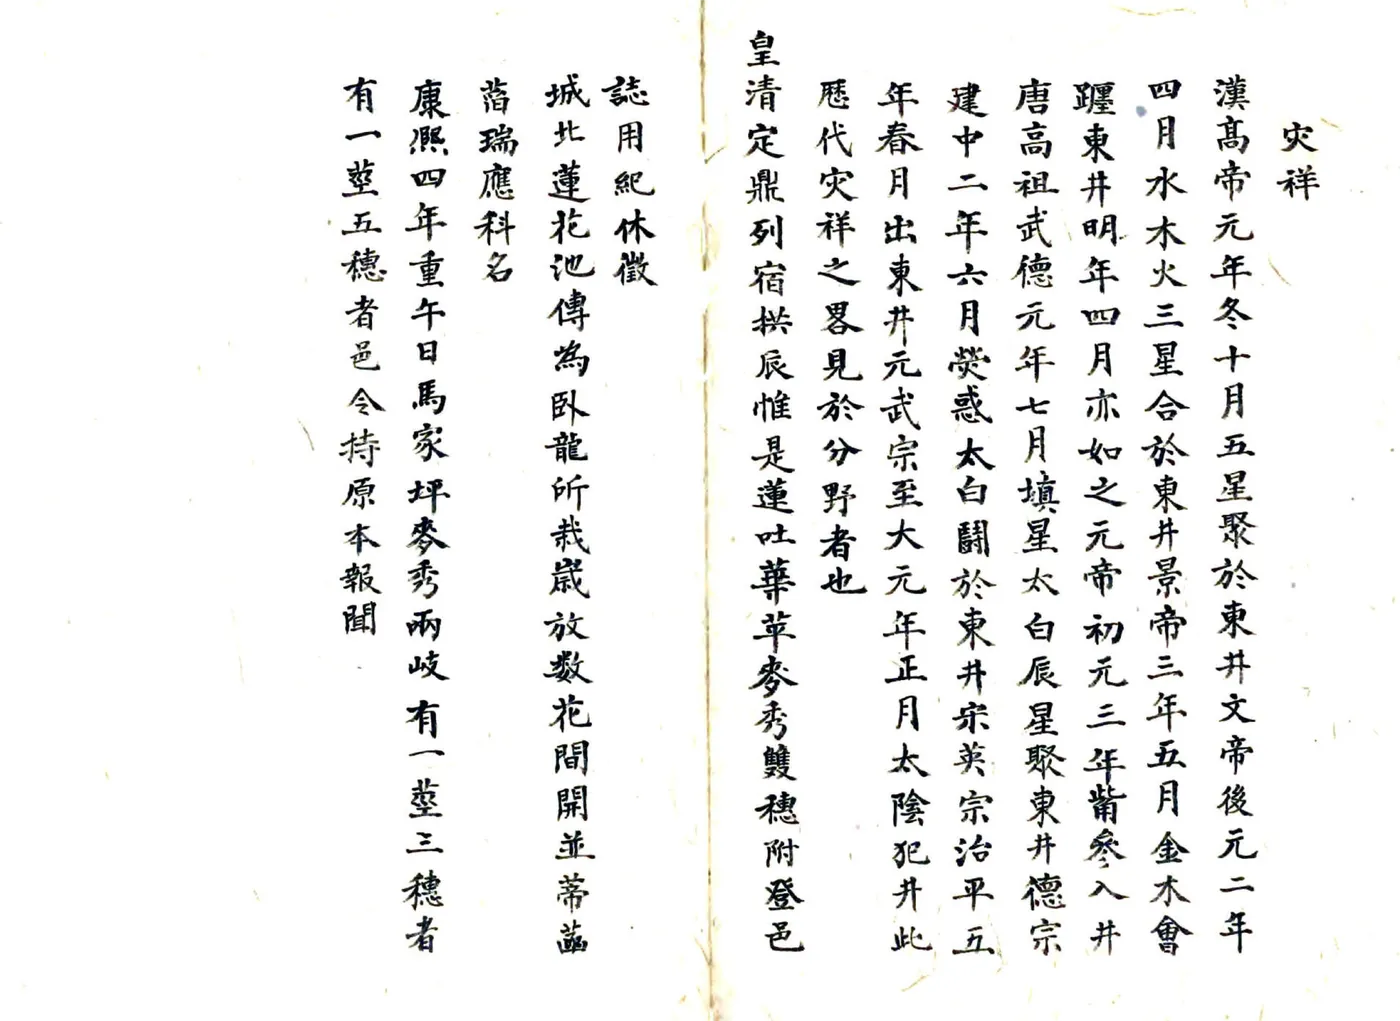 灾祥
漢髙帝元年冬十月五星聚於東井文帝後元二年
四月水木火三星合於東井景帝三年五月金木會
躔東井明年四月亦如之元帝初元三年觜參入井
唐高祖武德元年七月填星太白辰星聚東井德宗
建中二年六月熒惑太白鬪於東井宋英宗治平五
年春月出東井元武宗至大元年正月太陰犯井此
歷代灾祥之畧見於分野者也
皇清定鼎列宿拱辰惟是蓮吐華苹麥秀雙穗附登邑
誌用紀休徵
城北蓮花池傳為臥龍所栽歲放数花間開並蒂菡
萏瑞應科名
康熙四年重午日馬家坪麥秀兩岐有一莖三穗者
有一莖五穗者邑令持原本報聞